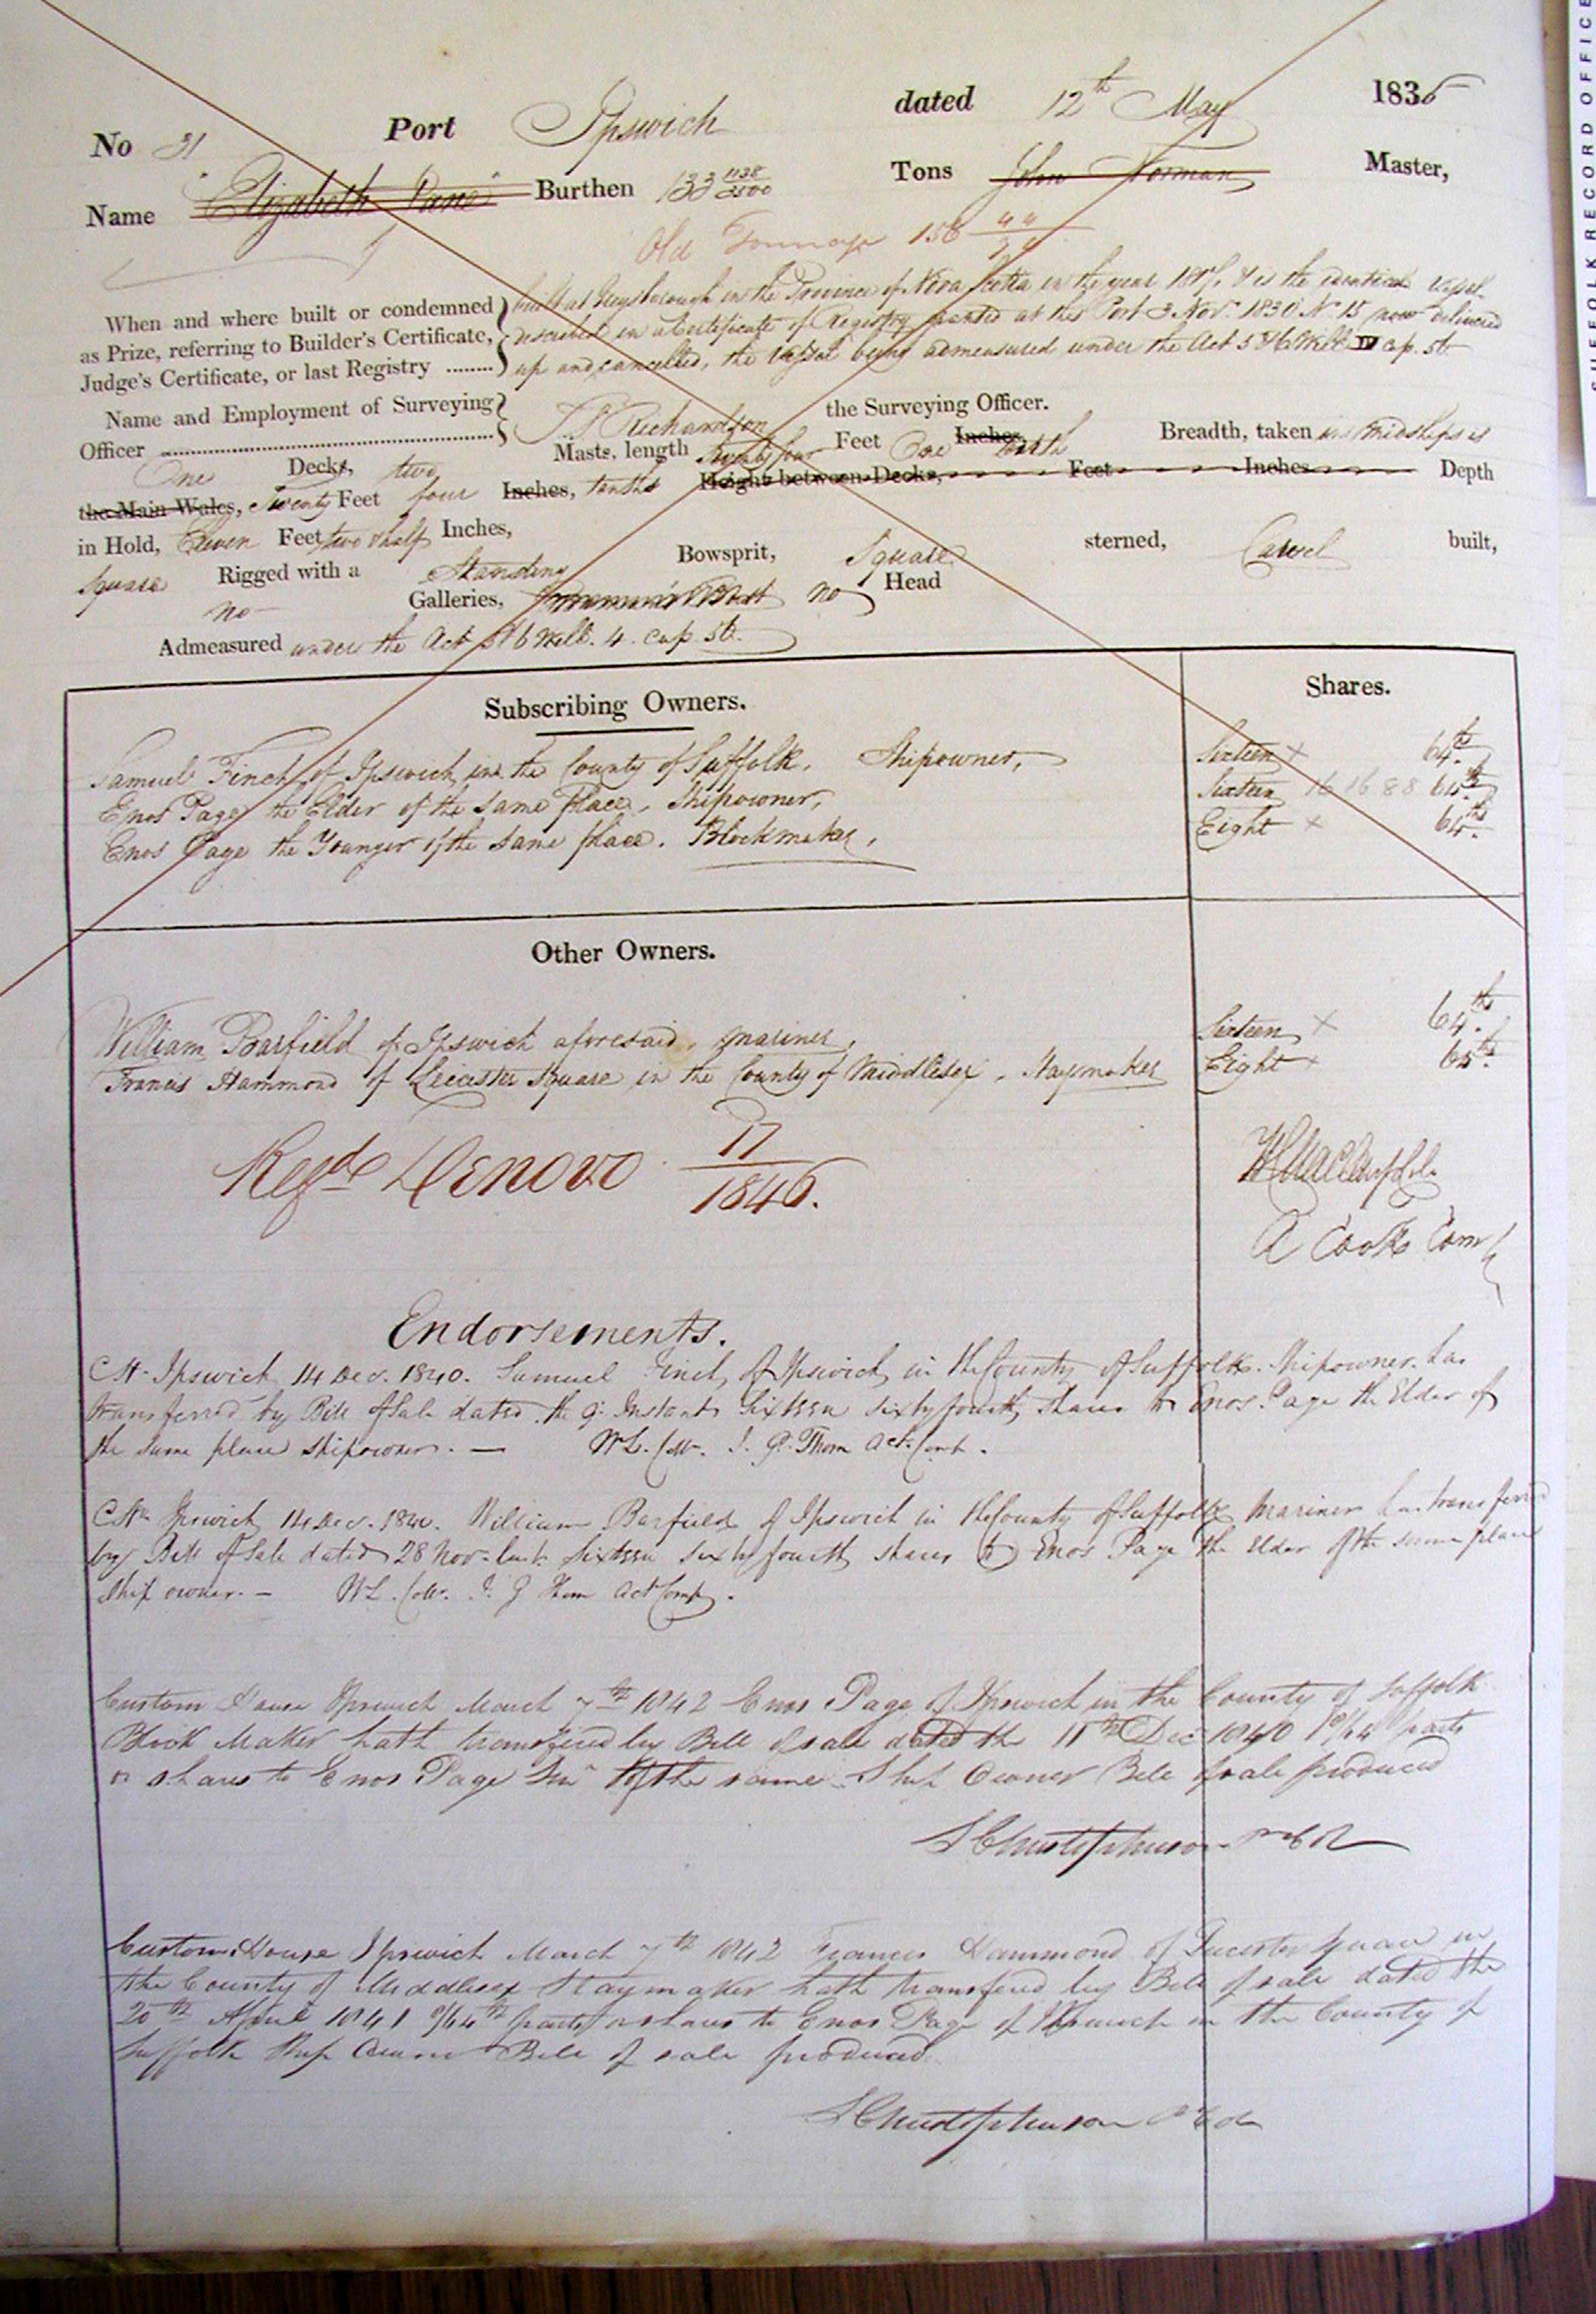 SUFFOLK RECORD OFFICE
No 31 Port Ipswich dated 12th May 1836
Name "Elizabeth Jane" Burthen 133 1138/3500 Tons John Norman Master,
Old Tonnage 156 44/94
When and where built or condemned as Prize, referring to Builder's Certificate, Judge's Certificate, or last Registry ........
built at Guysborough in the Province of Nova Scotia in the year & is the identical vessel
described in a Certificate of Registry granted at this Port 3 Nov. 1830 No. 15 now delivered
up and cancelled, the Vessel being admeasured under the Act 5 & 6 Will IV cap. 56
Name and Employment of Surveying Officer
Richardson the Surveying Officer.
One Decks, two Masts, length Seventy four Feet One Inches tenth Breadth, taken in midships is
the Main Wales, Twenty Feet four Inches, tenths Height between Decks, Feet Inches Depth
in Hold, Eleven Feet two & half Inches,
Square Rigged with a Standing Bowsprit, Square sterned, Carvel built,
no Galleries, no Head
Admeasured under the Act 5 & 6 Will. 4. cap. 56.
Subscribing Owners. Shares.
Samuel Finch of Ipswich in the County of Suffolk. Shipowner, Sixteen x 64ths
Enos Page the Elder of the same place, Shipowner, Sixteen 16 16 8 8 64ths
Enos Page the Younger of the same place. Blockmaker, Eight x 64ths
Other Owners.
William Barfield of Ipswich aforesaid, Mariner, Sixteen x 64ths
Francis Hammond of Leicester Square in the County of Middlesex, Staymaker Eight x 64ths
Regd Denovo 17/1846.
A Cooke Comr
Endorsements.
CH. Ipswich 14 Dec. 1840. Samuel Finch of Ipswich in the County of Suffolk. Shipowner has
transferred by Bill of Sale dated the 9 Instant Sixteen sixty fourth shares to Enos Page the Elder of
the same place Shipowner. — Thom Act. Comp.
CH Ipswich 14 Dec. 1840. William Barfield of Ipswich in the County of Suffolk Mariner has transferred
by Bill of Sale dated 28 Nov. last Sixteen sixty fourth shares to Enos Page the Elder of the same place
Ship owner. — Thom Act Comp.
Custom House Ipswich March 7th 1842 Enos Page of Ipswich in the County of Suffolk
Block Maker hath transfered by Bill of sale dated the 11th Dec 1840 8/64 parts
or shares to Enos Page Senr of the same Ship Owner Bill of sale produced
S Christopherson
Custom House Ipswich March 7th 1842 Francis Hammond of Leicester Square in
the County of Middlesex Staymaker hath transfered by Bill of sale dated the
20th April 1841 8/64th parts or shares to Enos Page of Ipswich in the County of
Suffolk Ship Owner Bill of sale produced
S Christopherson